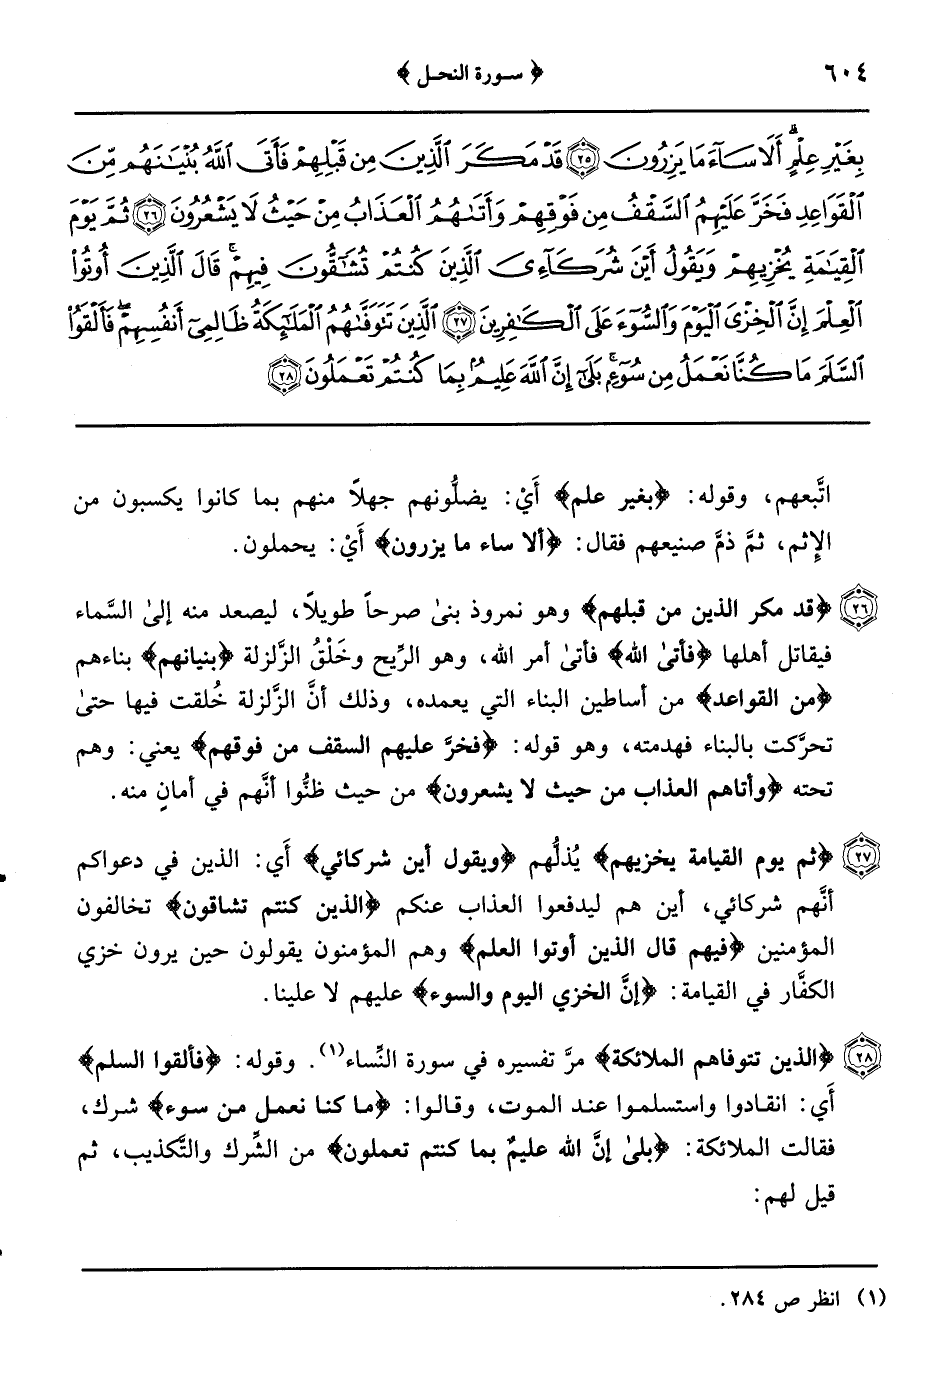 ٦٠٤ ﴿ سورة النحل ﴾
بِغَيْرِ عِلْمٍ أَلَا سَاءَ مَا يَزِرُونَ ٢٥ قَدْ مَكَرَ ٱلَّذِينَ مِن قَبْلِهِمْ فَأَتَى ٱللَّهُ بُنْيَٰنَهُم مِّنَ
ٱلْقَوَاعِدِ فَخَرَّ عَلَيْهِمُ ٱلسَّقْفُ مِن فَوْقِهِمْ وَأَتَىٰهُمُ ٱلْعَذَابُ مِنْ حَيْثُ لَا يَشْعُرُونَ ٢٦ ثُمَّ يَوْمَ
ٱلْقِيَٰمَةِ يُخْزِيهِمْ وَيَقُولُ أَيْنَ شُرَكَآءِىَ ٱلَّذِينَ كُنتُمْ تُشَٰٓقُّونَ فِيهِمْ ۚ قَالَ ٱلَّذِينَ أُوتُوا۟
ٱلْعِلْمَ إِنَّ ٱلْخِزْىَ ٱلْيَوْمَ وَٱلسُّوٓءَ عَلَى ٱلْكَٰفِرِينَ ٢٧ ٱلَّذِينَ تَتَوَفَّىٰهُمُ ٱلْمَلَٰٓئِكَةُ ظَالِمِىٓ أَنفُسِهِمْ ۖ فَأَلْقَوُا۟
ٱلسَّلَمَ مَا كُنَّا نَعْمَلُ مِن سُوٓءٍۭ ۚ بَلَىٰٓ إِنَّ ٱللَّهَ عَلِيمٌۢ بِمَا كُنتُمْ تَعْمَلُونَ ٢٨
اتَّبعهم، وقوله: ﴿بغير علم﴾ أَيْ: يضلُّونهم جهلاً منهم بما كانوا يكسبون من
الإِثم، ثمَّ ذمَّ صنيعهم فقال: ﴿ألا ساء ما يزرون﴾ أَيْ: يحملون.
٢٦ ﴿قد مكر الذين من قبلهم﴾ وهو نمروذ بنىٰ صرحاً طويلاً، ليصعد منه إلىٰ السَّماء
فيقاتل أهلها ﴿فأتىٰ الله﴾ فأتىٰ أمر الله، وهو الرِّيح وخَلْقُ الزَّلزلة ﴿بنيانهم﴾ بناءهم
﴿من القواعد﴾ من أساطين البناء التي يعمده، وذلك أنَّ الزَّلزلة خُلقت فيها حتىٰ
تحرَّكت بالبناء فهدمته، وهو قوله: ﴿فخرَّ عليهم السقف من فوقهم﴾ يعني: وهم
تحته ﴿وأتاهم العذاب من حيث لا يشعرون﴾ من حيث ظنُّوا أنَّهم في أمانٍ منه.
٢٧ ﴿ثم يوم القيامة يخزيهم﴾ يُذلُّهم ﴿ويقول أين شركائي﴾ أَي: الذين في دعواكم
أنَّهم شركائي، أين هم ليدفعوا العذاب عنكم ﴿الذين كنتم تشاقون﴾ تخالفون
المؤمنين ﴿فيهم قال الذين أوتوا العلم﴾ وهم المؤمنون يقولون حين يرون خزي
الكفَّار في القيامة: ﴿إنَّ الخزي اليوم والسوء﴾ عليهم لا علينا.
٢٨ ﴿الذين تتوفاهم الملائكة﴾ مرَّ تفسيره في سورة النِّساء(١). وقوله: ﴿فألقوا السلم﴾
أَي: انقادوا واستسلموا عند الموت، وقالوا: ﴿ما كنا نعمل من سوء﴾ شرك،
فقالت الملائكة: ﴿بلىٰ إنَّ الله عليمٌ بما كنتم تعملون﴾ من الشِّرك والتَّكذيب، ثم
قيل لهم:
(١) انظر ص ٢٨٤.